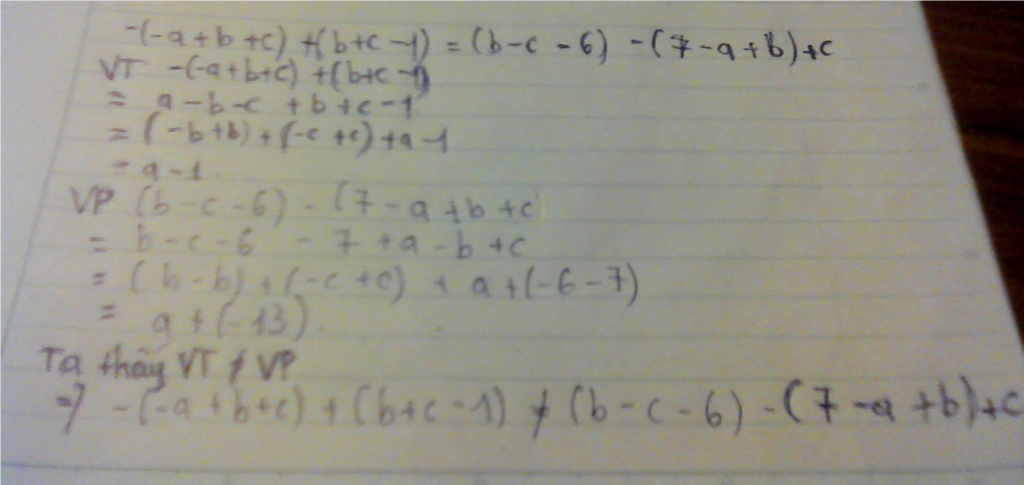 -(-a+b+c) +(b+c-1) = (b-c-6) -(7-a+b)+c
VT -(-a+b+c) +(b+c-1)
= a-b-c +b+c-1
= (-b+b)+(-c+c)+a-1
= a-1
VP (b-c-6) - (7-a+b+c
= b-c-6 - 7 +a-b+c
= (b-b)+(-c+c) + a+(-6-7)
= a+(-13)
Ta thấy VT ≠ VP
=> -(-a+b+c) + (b+c-1) ≠ (b-c-6) -(7-a+b)+c